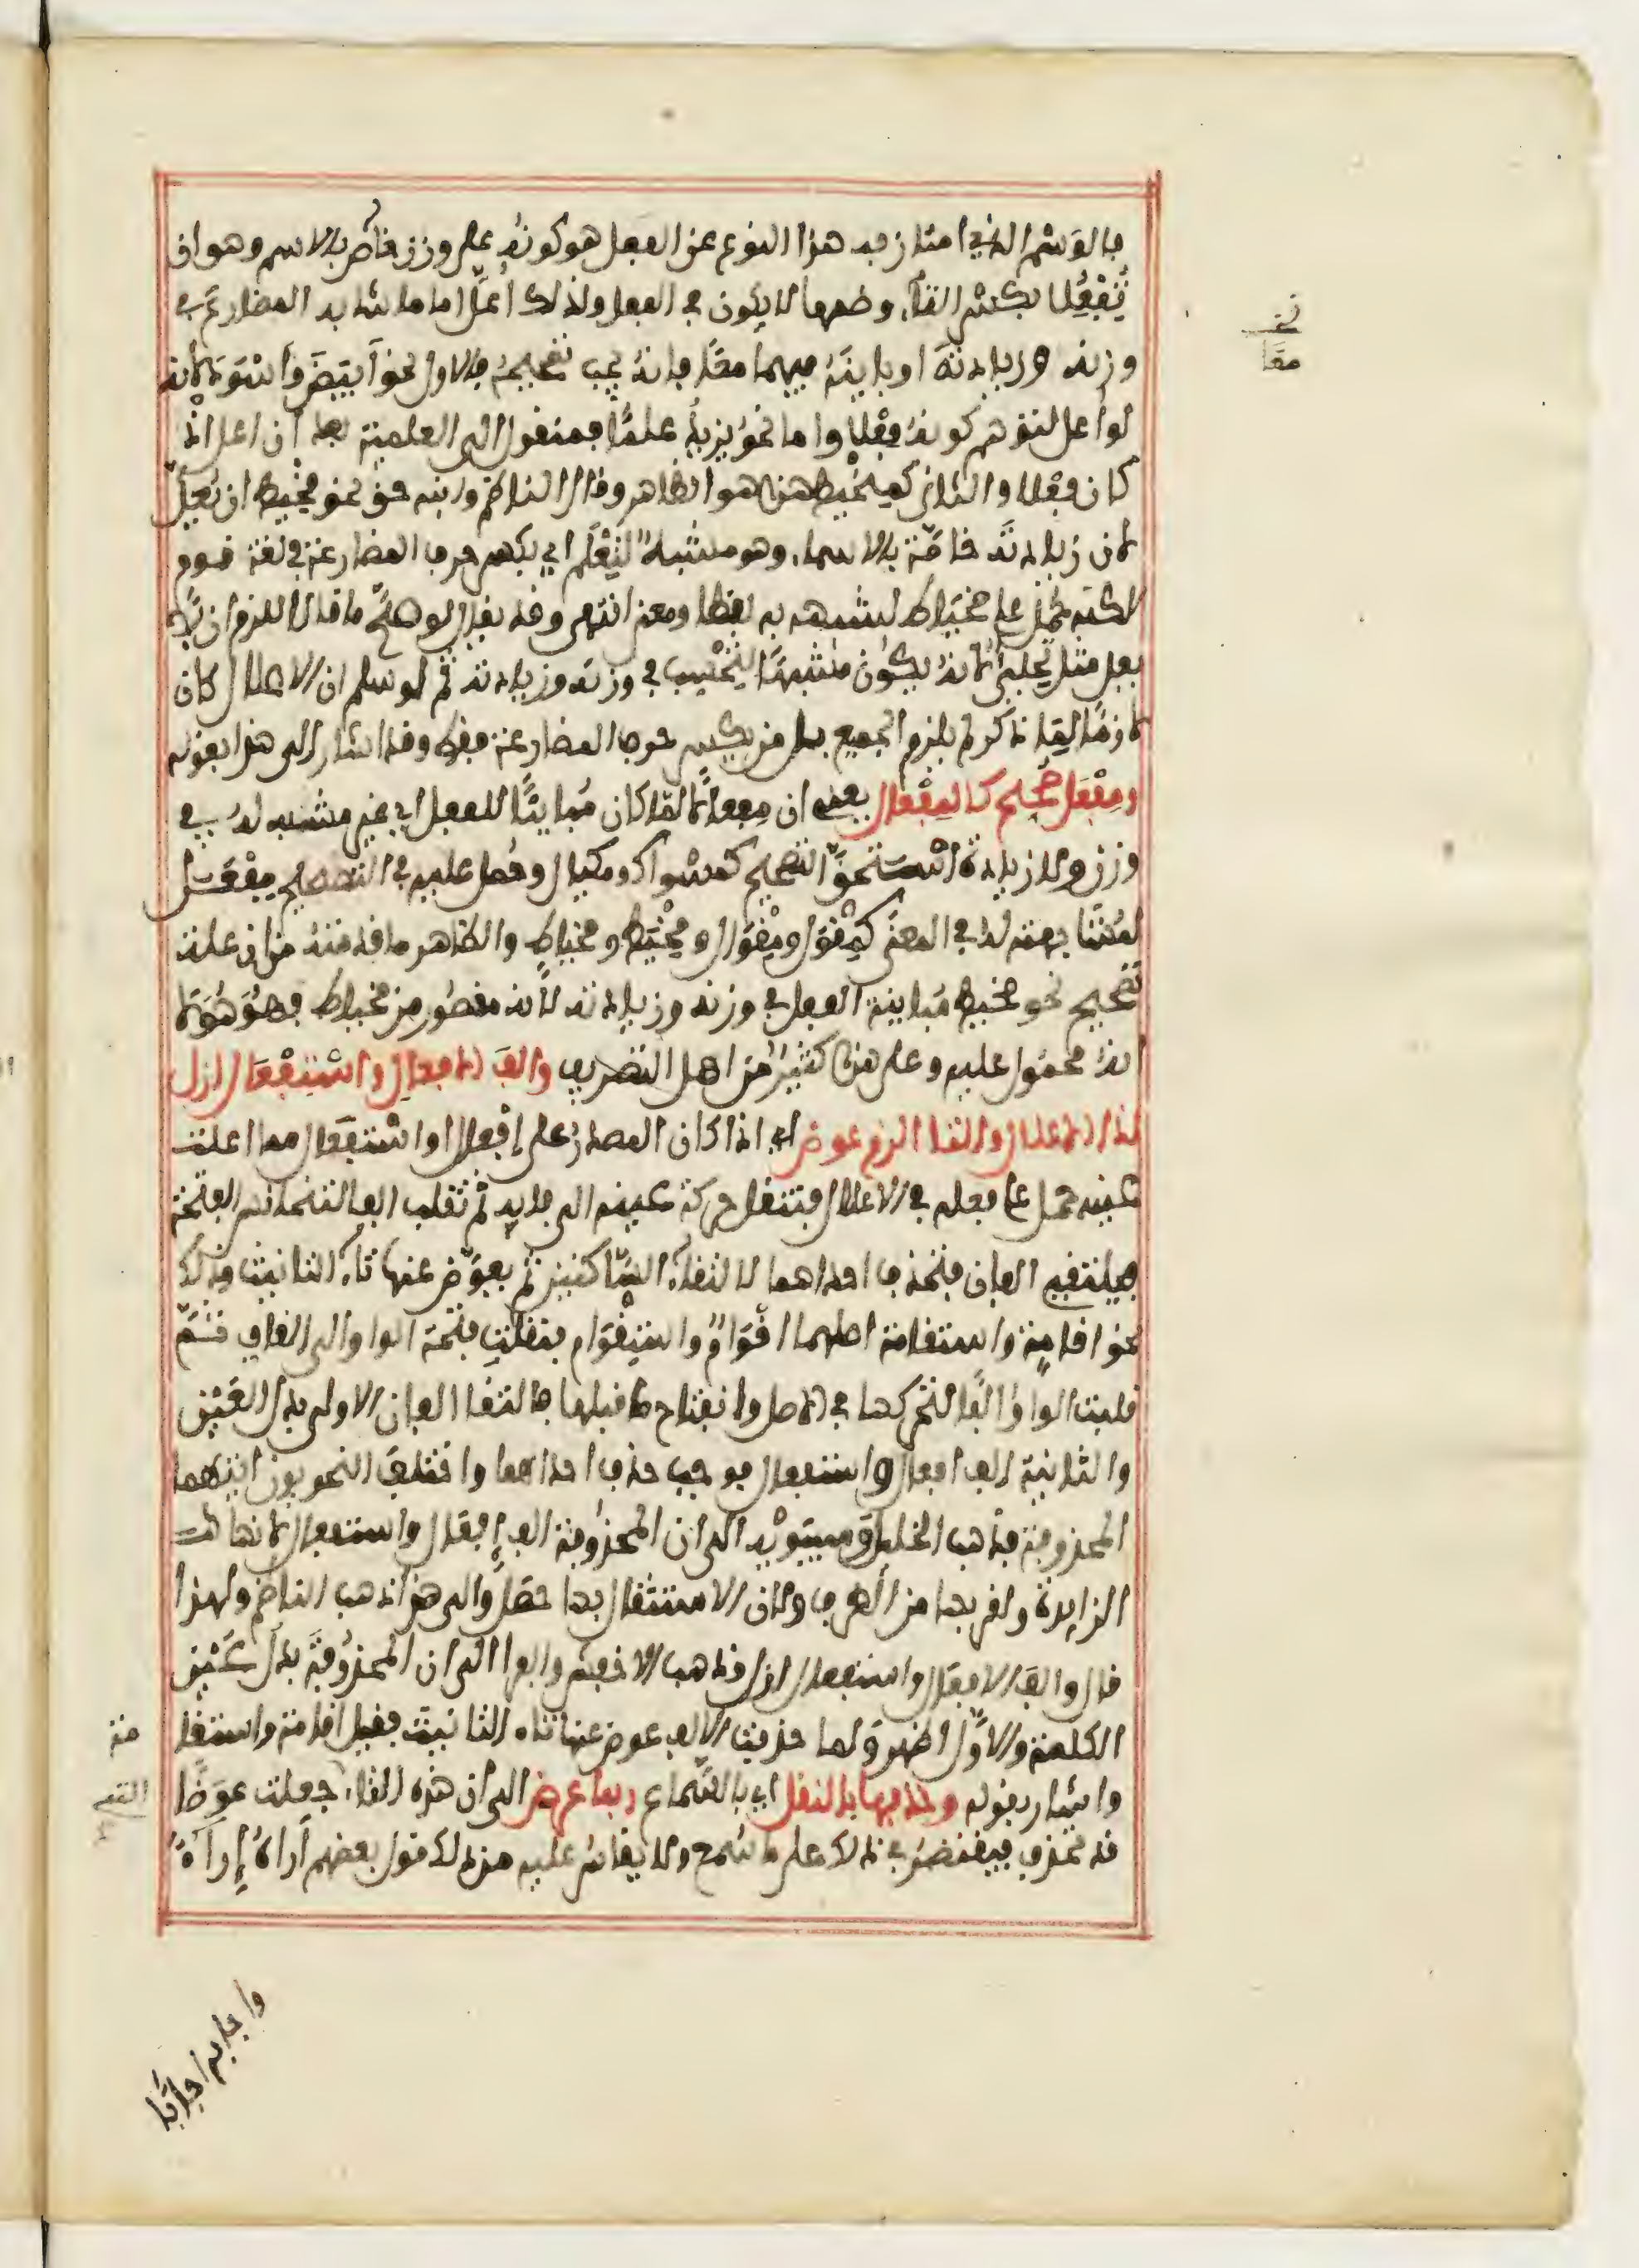 فالوسم الذي امتاز به هذا النوع عن الفعل هو كونه على وزن خاص بالاسم وهو ان
تفعلا بكسر التاء وضمها لا يكون في الفعل ولذلك أعل اما ما شابه المضارع في
وزنه وزيادته او باينه فيهما معا فانه يجب تصحيحه فالاول نحو أبيض وأسود لانه
لو أعل لتوهم كونه فعلا واما نحو يزيد علما فمنقول الى العلمية بعد أن اعل اذ
كان فعلا والثاني كمخيط هذا هو الظاهر وقال الناظم وابنه حق نحو مخيط ان يعل
لان زيادته خاصة بالاسماء وهو مشبه لتعلم اي بكسر حرف المضارعة في لغة قوم
لكنه حمل على مخياط لشبهه به لفظا ومعنى انتهى وقد يقال لو صح ما قالا للزم ان لا
يعل مثل تحلئ لانه يكون مشبها لتحسب في وزنه وزيادته ثم لو سلم ان الاعلال كان
لازما لما ذكر لم يلزم الجميع بل من يكسر حرف المضارعة فقط وقد اشار الى هذا بقوله
ومفعل صحح كالمفعال يعني ان مفعالا لما كان مباينا للفعل اي غير مشبه له في
وزن ولا زيادة استحق التصحيح كمسواك ومكيال وحمل عليه في التصحيح مفعل
لمشابهته له في المعنى كمقول ومقوال ومخيط ومخياط والظاهر ما قدمته من ان علة
تصحيح نحو مخيط مباينة الفعل في وزنه وزيادته لأنه مقصور من مخياط فهو هو لا
انه محمول عليه وعلى هذا كثير من اهل التصريف والف الافعال واستفعال ازل
لذا الاعلال والتا الزم عوض اي اذا كان المصدر على إفعال او استفعال مما اعلت
عينه حمل على فعله في الاعلال فتنقل حركة عينه الى فايه ثم تقلب الفا لتجانس الفتحة
فيلتقي الفان فتحذف احداهما لالتقاء الساكنين ثم يعوض عنها تاء التانيث وذلك
نحو اقامة واستقامة اصلهما اقوام واستقوام فنقلت فتحة الواو الى القاف ثم
قلبت الواو الفا لتحركها في الاصل وانفتاح ما قبلها فالتقا الفان الاولى بدل العين
والثانية الف افعال واستفعال فوجب حذف احداهما واختلف النحويون ايتهما
المحذوفة فذهب الخليل وسيبويه الى ان المحذوفة الف إفعال واستفعال لانها
الزايدة ولقربها من الطرف ولان الاستثقال بها حصل والى هذا ذهب الناظم ولهذا
قال والف الافعال واستفعال ازل وذهب الاخفش والفرا الى ان المحذوفة بدل عين
الكلمة والاول اظهر ولما حذفت الالف عوض عنها تاء التانيث فقيل اقامة واستقا
مة
واشار بقوله وحذفها بالنقل اي بالسماع ربما عرض الى ان هذه التاء جعلت عوضا
التي
قد تحذف فيقتصر في ذلك على ما سمع ولا يقاس عليه من ذلك قول بعضهم أراه إراءً
واجابه اجابا
معا